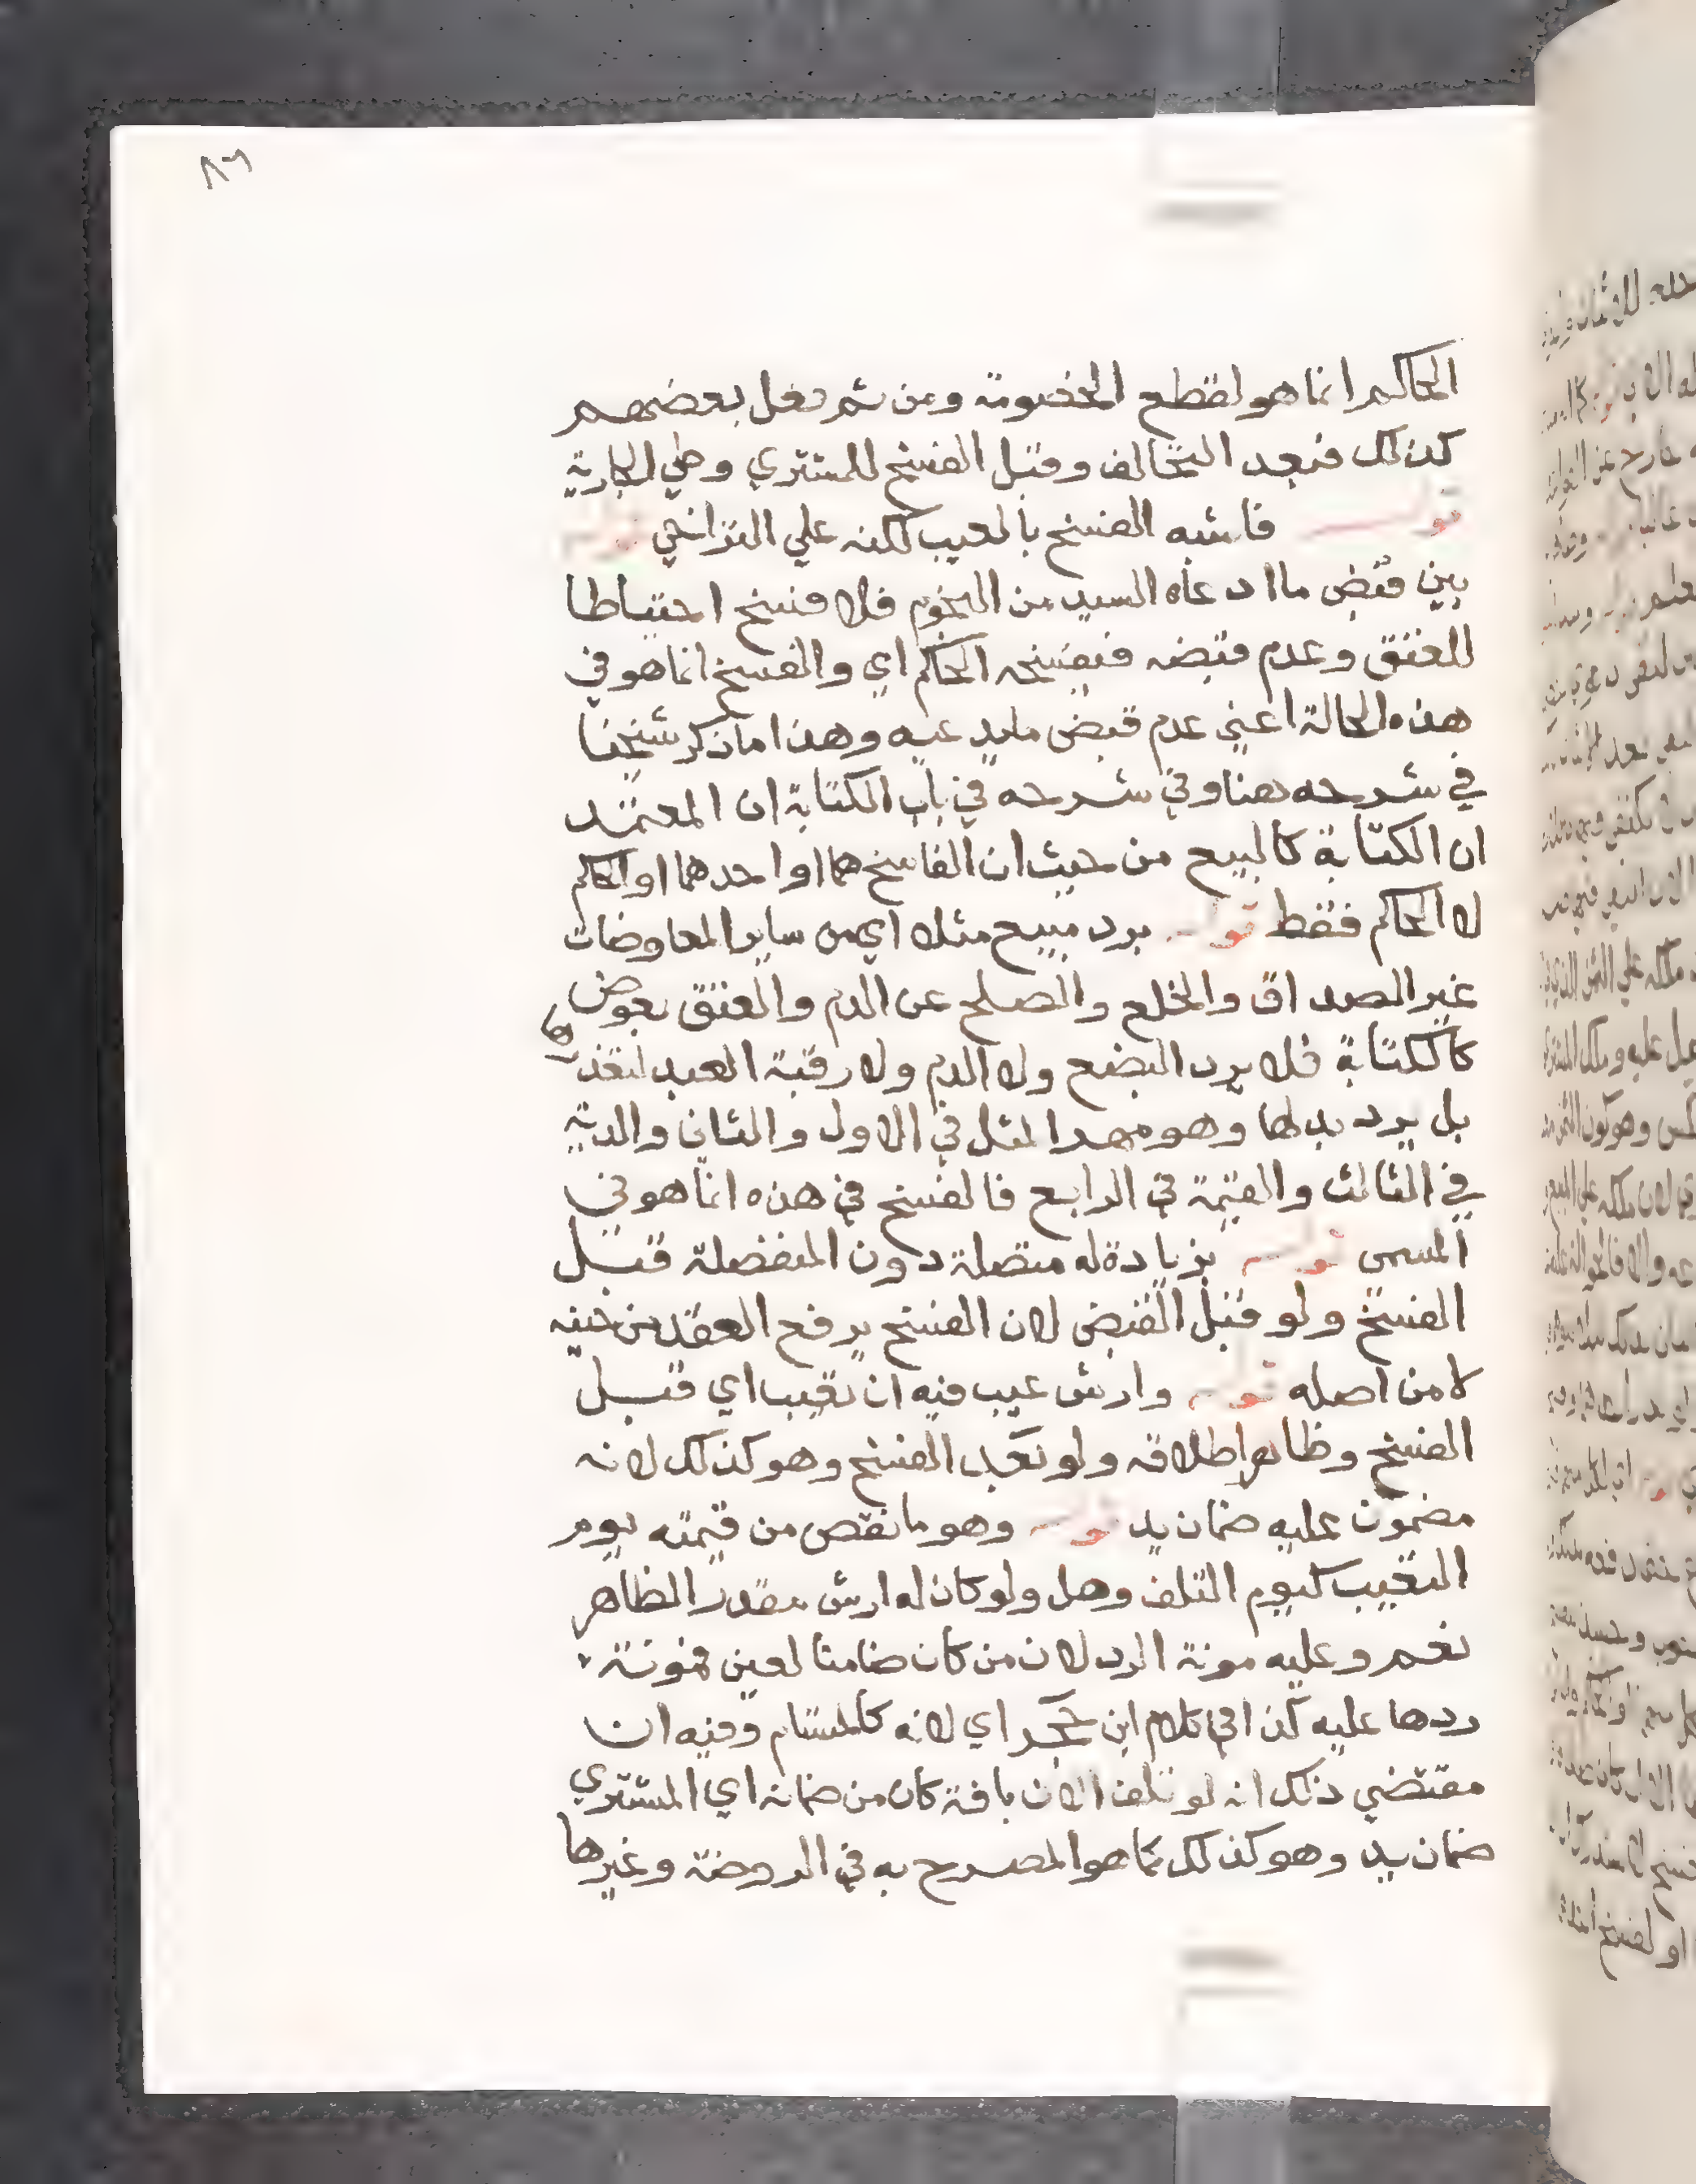 ٨٦
الحاكم انما هو لقطع الخصومة ومن ثم نقل بعضهم
كذلك فبعد التحالف وقبل الفسخ للمشتري وطي الجارية
قوله فاشبه الفسخ بالعيب لكنه علي التراخي قوله
بين قبض ما ادعاه السيد من النجوم فلا فسخ احتياطا
للعتق وعدم قبضه فيفسخه الحاكم اي والفسخ انما هو في
هذه الحالة اعني عدم قبض ما يدعيه وهذا ما ذكر شيخنا
في شرحه هنا وفي شرحه في باب الكتابة ان المعتمد
ان الكتابة كالبيع من حيث ان الفاسخ هما او احدهما او الحاكم
لا الحاكم فقط قوله برد مبيع مثلا اي من ساير المعاوضات
غير الصداق والخلع والصلح عن الدم والعتق بعوض
كالكتابة فلا يرد البضع ولا الدم ولا رقبة العبد لتعذرها
بل يرد بدلها وهو مهر المثل في الاول والثاني والدية
في الثالث والقيمة في الرابع فالفسخ في هذه انما هو في
المسمى قوله بزيادة له متصلة دون المنفصلة قبل
الفسخ ولو قبل القبض لان الفسخ يرفع العقد من حينه
لا من اصله قوله وارش عيب فيه ان تعيب اي قبل
الفسخ وظاهر اطلاقه ولو بعد الفسخ وهو كذلك لانه
مضمون عليه ضمان يد قوله وهو ما نقص من قيمته يوم
التعيب كيوم التلف وهل ولو كان له ارش مقدر الظاهر
نعم وعليه مونة الرد لان من كان ضامنا لعين فمونة
ردها عليه كذا في كلام ابن حجر اي لانه كالمستام وفيه ان
مقتضي ذلك انه لو تلف الان بافة كان من ضمانه اي المشتري
ضمان يد وهو كذلك كما هو المصرح به في الروضة وغيرها